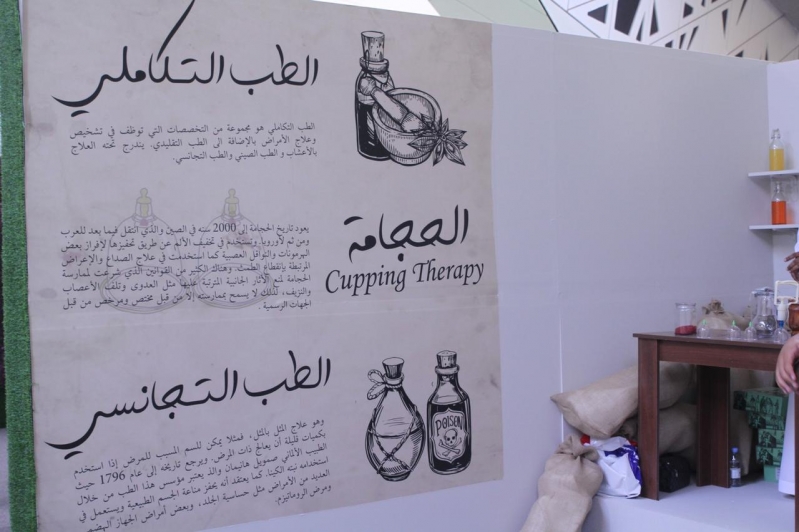 الطب التكاملي
الطب التكاملي هو مجموعة من التخصصات التي توظف في تشخيص
وعلاج الأمراض بالإضافة الى الطب التقليدي. يندرج تحته العلاج
بالأعشاب و الطب الصيني والطب التجانسي.
الحجامة
Cupping Therapy
يعود تاريخ الحجامة إلى 2000 سنه في الصين والذي انتقل فيما بعد للعرب
ومن ثم لأوروبا. وتستخدم في تخفيف الألم عن طريق تحفيزها لإفراز بعض
الهرمونات والنواقل العصبية كما استخدمت في علاج الصداع والإعراض
المرتبطة بإنقطاع الطمث. وهناك الكثير من القوانين الذي شرعت لممارسة
الحجامة لمنع الآثار الجانبية المترتبة عليها مثل العدوى وتلف الأعصاب
والنزيف، لذلك لا يسمح بممارسته إلا من قبل مختص ومرخص من قبل
الجهات الرسمية.
الطب التجانسي
وهو علاج المثل بالمثل، فمثلا يمكن للسم المسبب للمرض إذا استخدم
بكميات قليلة أن يعالج ذات المرض. ويرجع تاريخه إلى عام 1796 حيث
الطبيب الألماني صمويل هانيمان والذ يعتبر مؤسس هذا الطب من خلال
استخدامه نبته الكينا. كما يعتقد أنه يحفز مناعة الجسم الطبيعية ويستعمل في
العديد من الأمراض مثل حساسية الجلد، وبعض أمراض الجهاز الهضم
ومرض الروماتيزم.
POISON